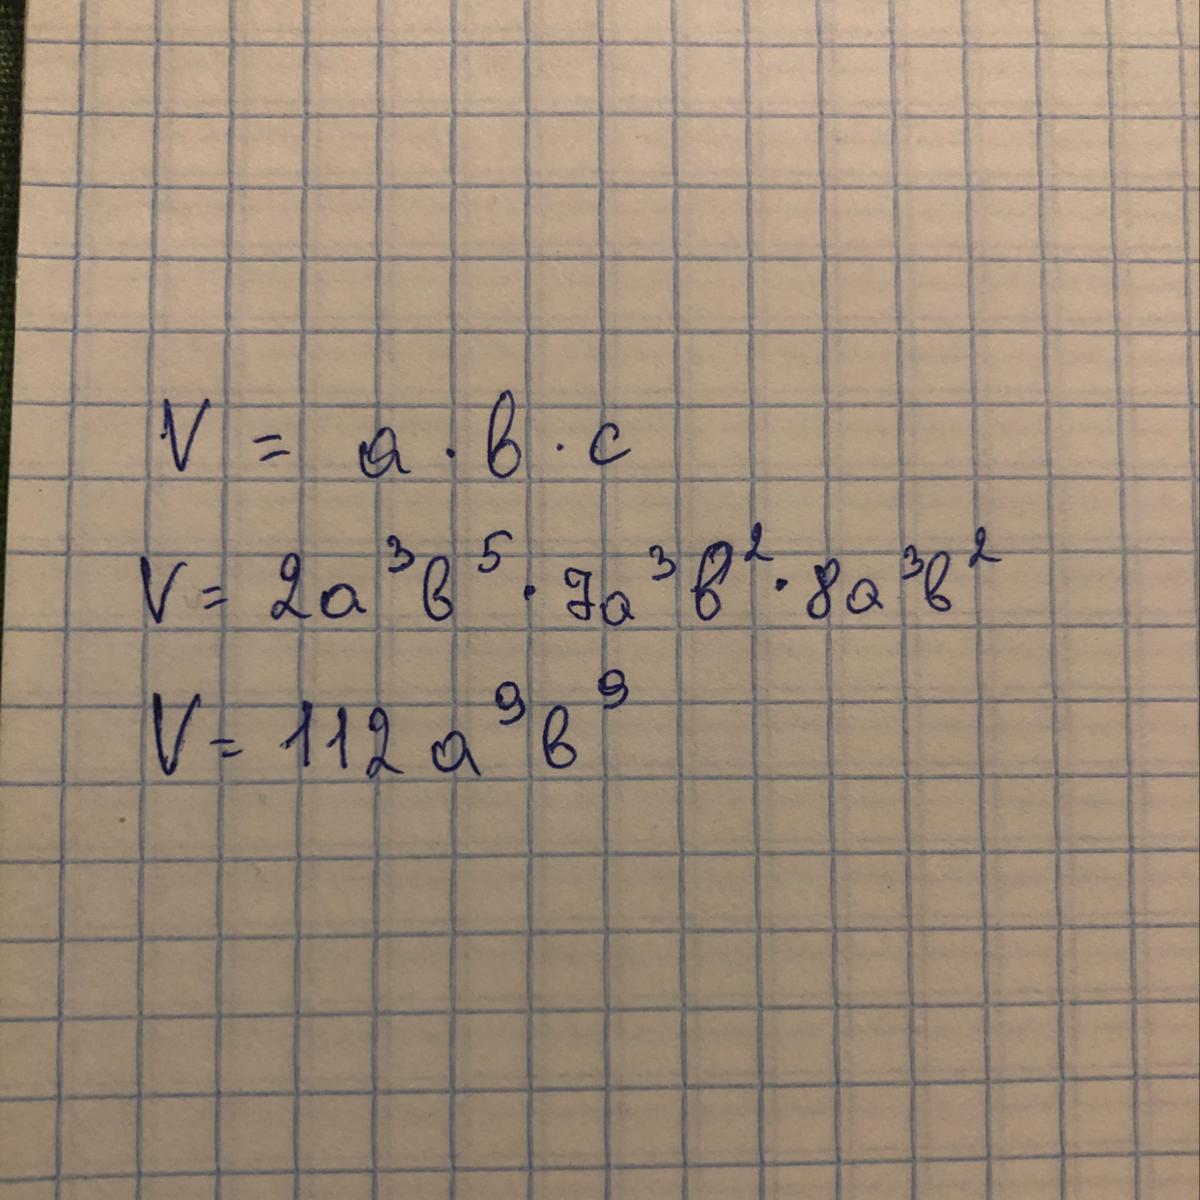 V = a · b · c
V = 2a³b⁵ · 7a³b² · 8a³b²
V = 112a⁹b⁹